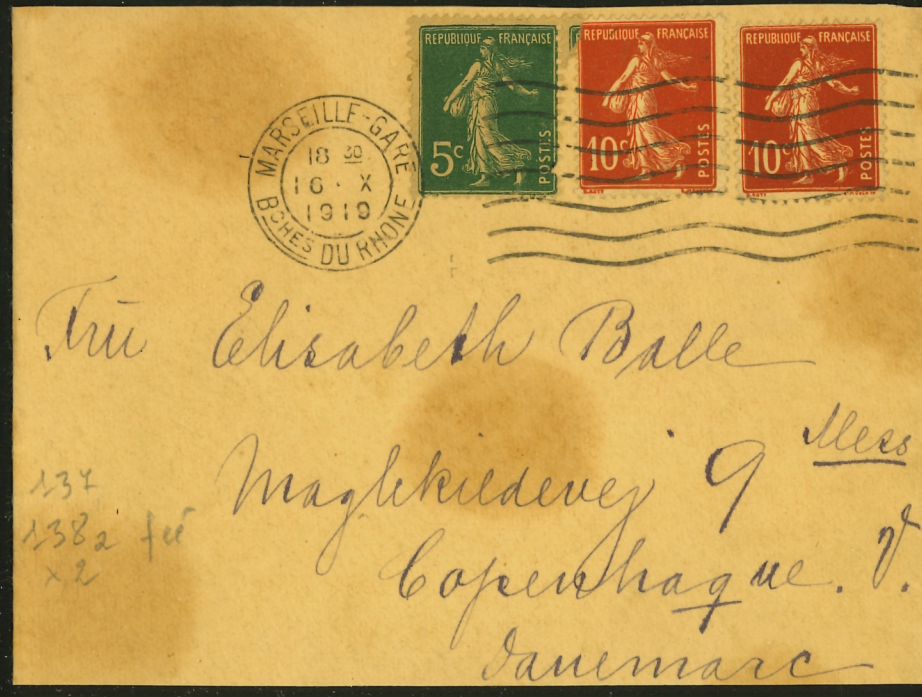 REPUBLIQUE FRANÇAISE
5c
POSTES
REPUBLIQUE FRANÇAISE
10c
POSTES
REPUBLIQUE FRANÇAISE
10c
POSTES
MARSEILLE-GARE
18 30
16 · X
1919
BCHES DU RHONE
Fru Elisabeth Balle
Maglekildevej 9 Mess
Copenhague. V.
Danemarc
137
138 a
x 2